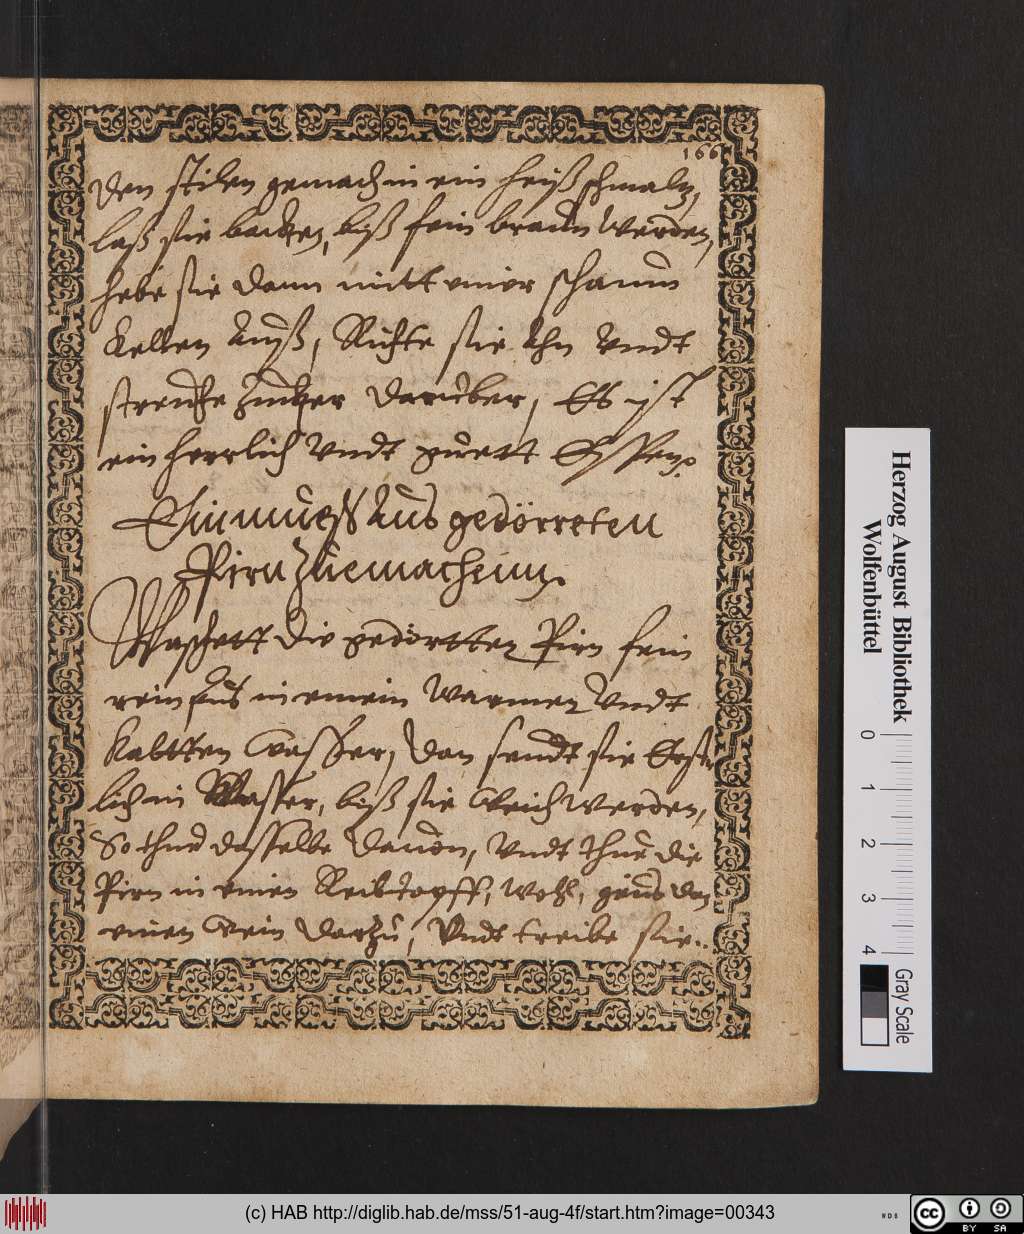 166
den stilen gemach in ein heiß schmaltz,
laß sie backen, biß fein braun werden,
hebe sie dann mitt einer schaum
Kellen auß, Richte sie ahn vndt
strewe Zucker darüber, Es ist
ein herrlich vndt guett Essen.
Ein mueß Aus gedörreten
Pirn Zue machenn.
Waschett die gedörtten Pirn fein
rein aus in einem warmen vndt
kaltten wasser, dan seudt sie Erst
lich in Wasser, biß sie weich werden,
So thue dasselbe dauon, vndt thue die
Pirn in einen Reibtopff, wohl, geus den
einen wein darzu, Vndt treibe sie..
Herzog August Bibliothek
Wolfenbüttel
0 1 2 3 4
Gray Scale
(c) HAB http://diglib.hab.de/mss/51-aug-4f/start.htm?image=00343
WDB
cc BY SA